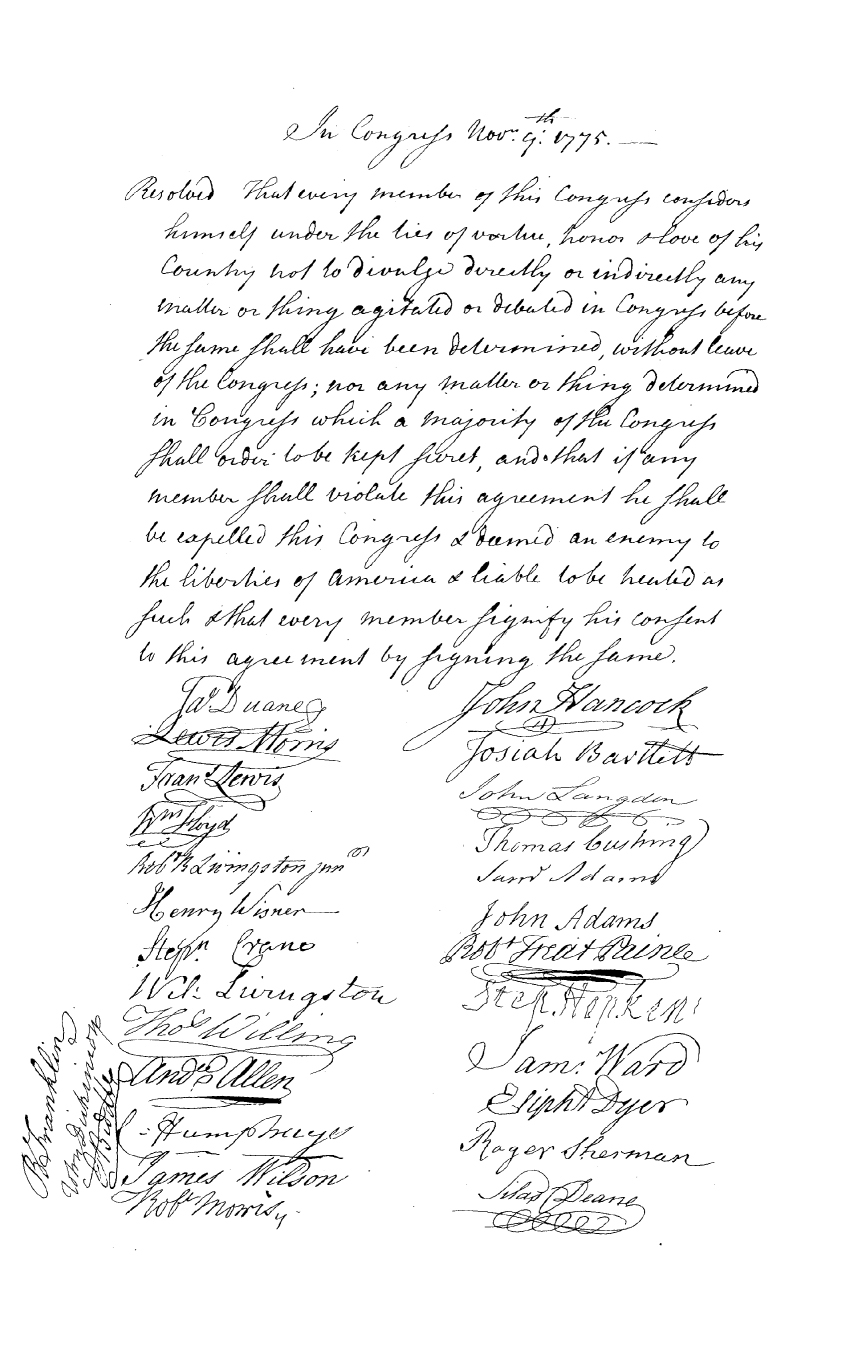 In Congress Nov.r 9.th 1775.
Resolved That every member of this Congress considers
himself under the ties of virtue, honor & love of his
Country not to divulge directly or indirectly any
matter or thing agitated or debated in Congress before
the same shall have been determined, without leave
of the Congress; nor any matter or thing determined
in Congress which a majority of the Congress
shall order to be kept secret, and that if any
member shall violate this agreement he shall
be expelled this Congress & deemed an enemy to
the liberties of America & liable to be treated as
such & that every member signify his consent
to this agreement by signing the same.
Jas. Duane
Lewis Morris
Frans. Lewis
Wm Floyd
Robt R Livingston junr
Henry Wisner
Stepn Crane
Wil: Livingston
Thos Willing
Andw Allen
C: Humphreys
James Wilson
Robt Morris
B Franklin
John Dickinson
E Biddle
John Hancock
Josiah Bartlett
John Langdon
Thomas Cushing
Saml Adams
John Adams
Robt Treat Paine
Step. Hopkins
Sam: Ward
Elipht Dyer
Roger Sherman
Silas Deane